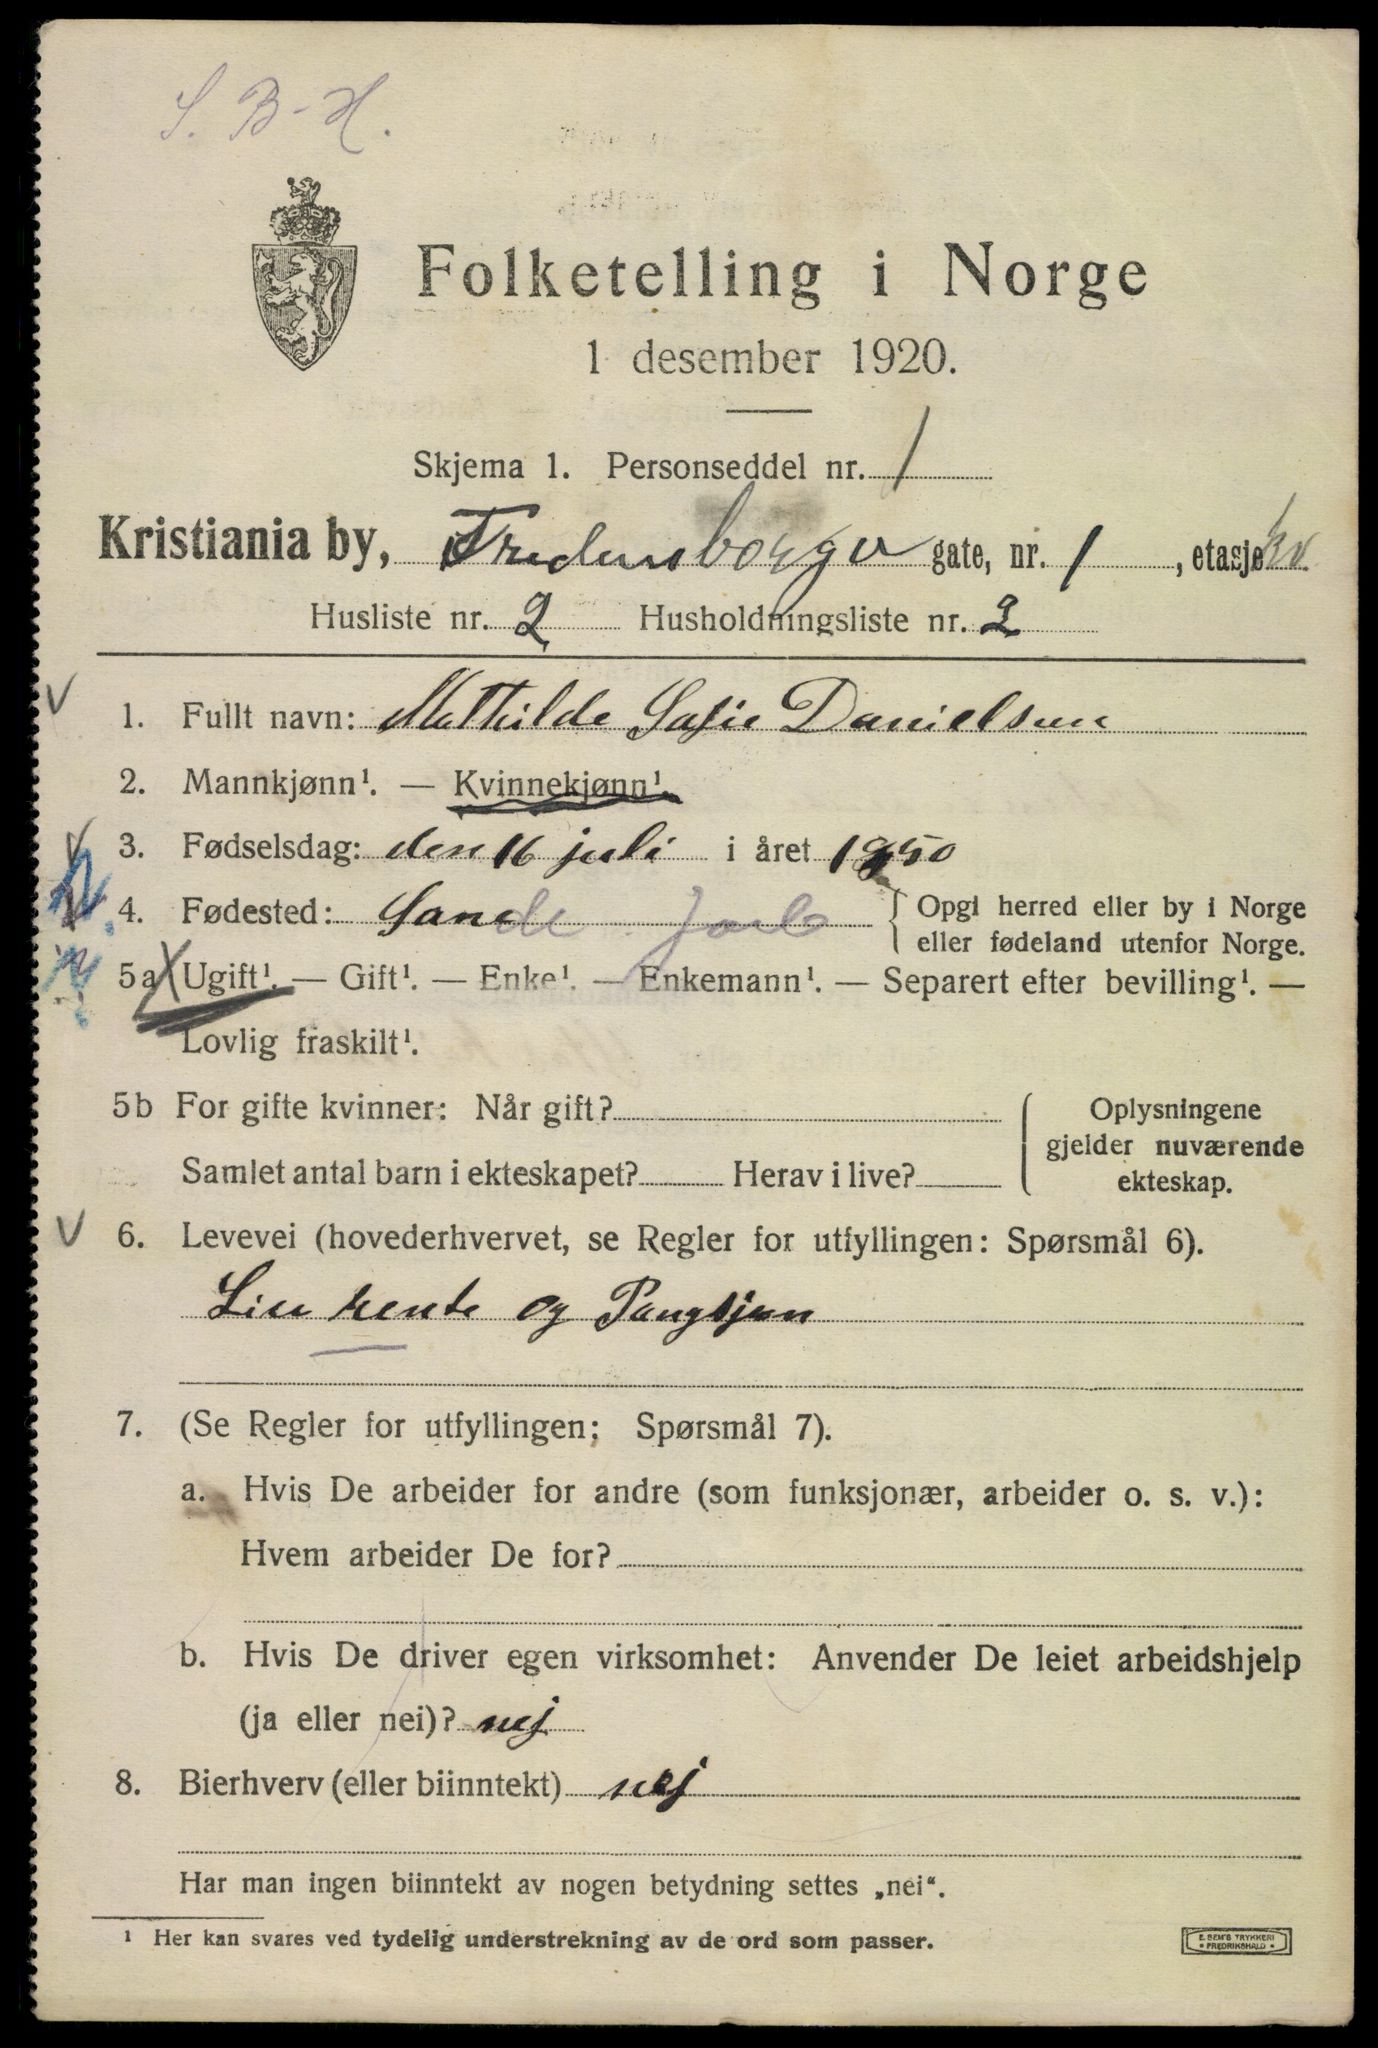 S. B-H.
Folketelling i Norge
1 desember 1920.
Skjema 1. Personseddel nr. 1
Kristiania by, Fredensborgv gate, nr. 1, etasje kv
Husliste nr. 2 Husholdningsliste nr. 2
1. Fullt navn: Mathilde Sofie Danielsen
2. Mannkjønn¹. — Kvinnekjønn¹.
3. Fødselsdag: den 16 juli i året 1850
4. Fødested: Sande Jarls { Opgi herred eller by i Norge
eller fødeland utenfor Norge.
5a Ugift¹. — Gift¹. — Enke¹. — Enkemann¹. — Separert efter bevilling¹. —
Lovlig fraskilt¹.
5b For gifte kvinner: Når gift? { Oplysningene
gjelder nuværende
Samlet antal barn i ekteskapet? Herav i live? ekteskap.
6. Levevei (hovederhvervet, se Regler for utfyllingen: Spørsmål 6).
rente og Pangsjon
7. (Se Regler for utfyllingen; Spørsmål 7).
a. Hvis De arbeider for andre (som funksjonær, arbeider o. s. v.):
Hvem arbeider De for?
b. Hvis De driver egen virksomhet: Anvender De leiet arbeidshjelp
(ja eller nei)? nej
8. Bierhverv (eller biinntekt) nej
Har man ingen biinntekt av nogen betydning settes „nei“.
¹ Her kan svares ved tydelig understrekning av de ord som passer.
E. SEM'S TRYKKERI
FREDRIKSHALD